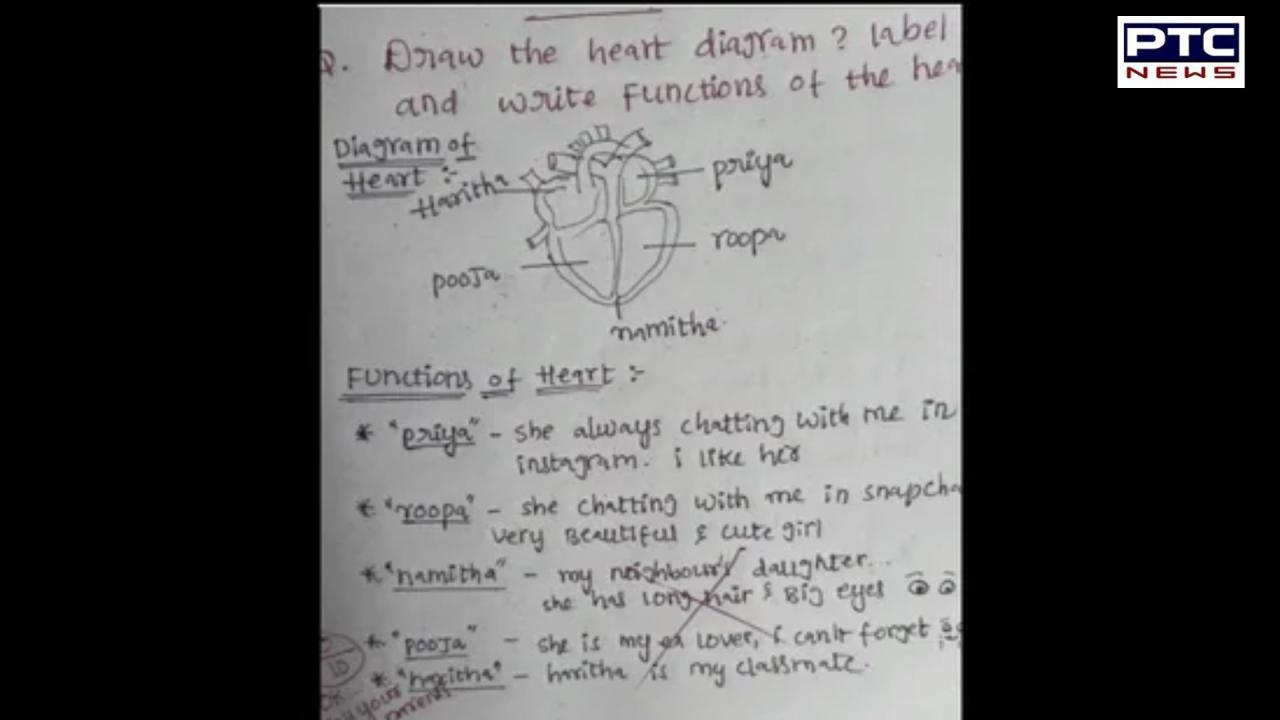 PTC
NEWS
Q. Draw the heart diagram ? label
and write functions of the hea
Diagram of
Heart :-
Haritha
priya
roopa
pooja
namitha.
Functions of Heart :-
* "priya" - she always chatting with me in
instagram. i like her
* "roopa" - she chatting with me in snapcha
very Beautiful & cute girl
* "namitha" - my neighbour's daughter...
she has long hair & Big eyes
* "pooja" - she is my ex lover, i can't forget
* "haritha" - haritha is my classmate.
10
your